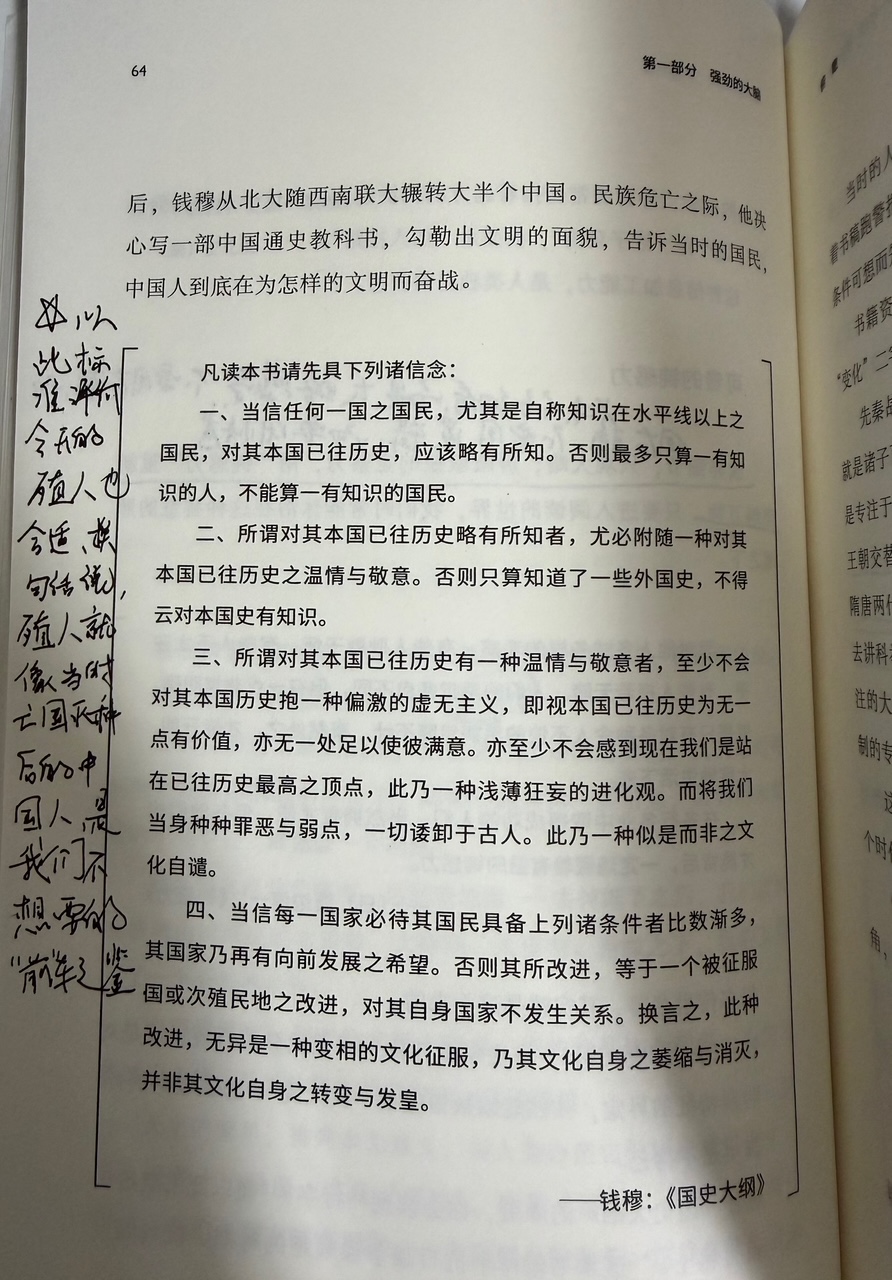 64
第一部分 强劲的大脑
后，钱穆从北大随西南联大辗转大半个中国。民族危亡之际，他决
心写一部中国通史教科书，勾勒出文明的面貌，告诉当时的国民，
中国人到底在为怎样的文明而奋战。
凡读本书请先具下列诸信念：
一、当信任何一国之国民，尤其是自称知识在水平线以上之
国民，对其本国已往历史，应该略有所知。否则最多只算一有知
识的人，不能算一有知识的国民。
二、所谓对其本国已往历史略有所知者，尤必附随一种对其
本国已往历史之温情与敬意。否则只算知道了一些外国史，不得
云对本国史有知识。
三、所谓对其本国已往历史有一种温情与敬意者，至少不会
对其本国历史抱一种偏激的虚无主义，即视本国已往历史为无一
点有价值，亦无一处足以使彼满意。亦至少不会感到现在我们是站
在已往历史最高之顶点，此乃一种浅薄狂妄的进化观。而将我们
当身种种罪恶与弱点，一切诿卸于古人。此乃一种似是而非之文
化自谴。
四、当信每一国家必待其国民具备上列诸条件者比数渐多，
其国家乃再有向前发展之希望。否则其所改进，等于一个被征服
国或次殖民地之改进，对其自身国家不发生关系。换言之，此种
改进，无异是一种变相的文化征服，乃其文化自身之萎缩与消灭，
并非其文化自身之转变与发皇。
——钱穆：《国史大纲》
以
此标
准评价
今天的
殖人也
合适，换
句话说，
殖人就
像当时
亡国灭种
后的中
国人，是
我们不
想要的
“前车之鉴
当时的人
着书稿跑警报
条件可想而知
书籍资
“变化”二字
先秦战
就是诸子
是专注于
王朝交替
隋唐两代
去讲科考
注的大
制的专
这
个时代
角，